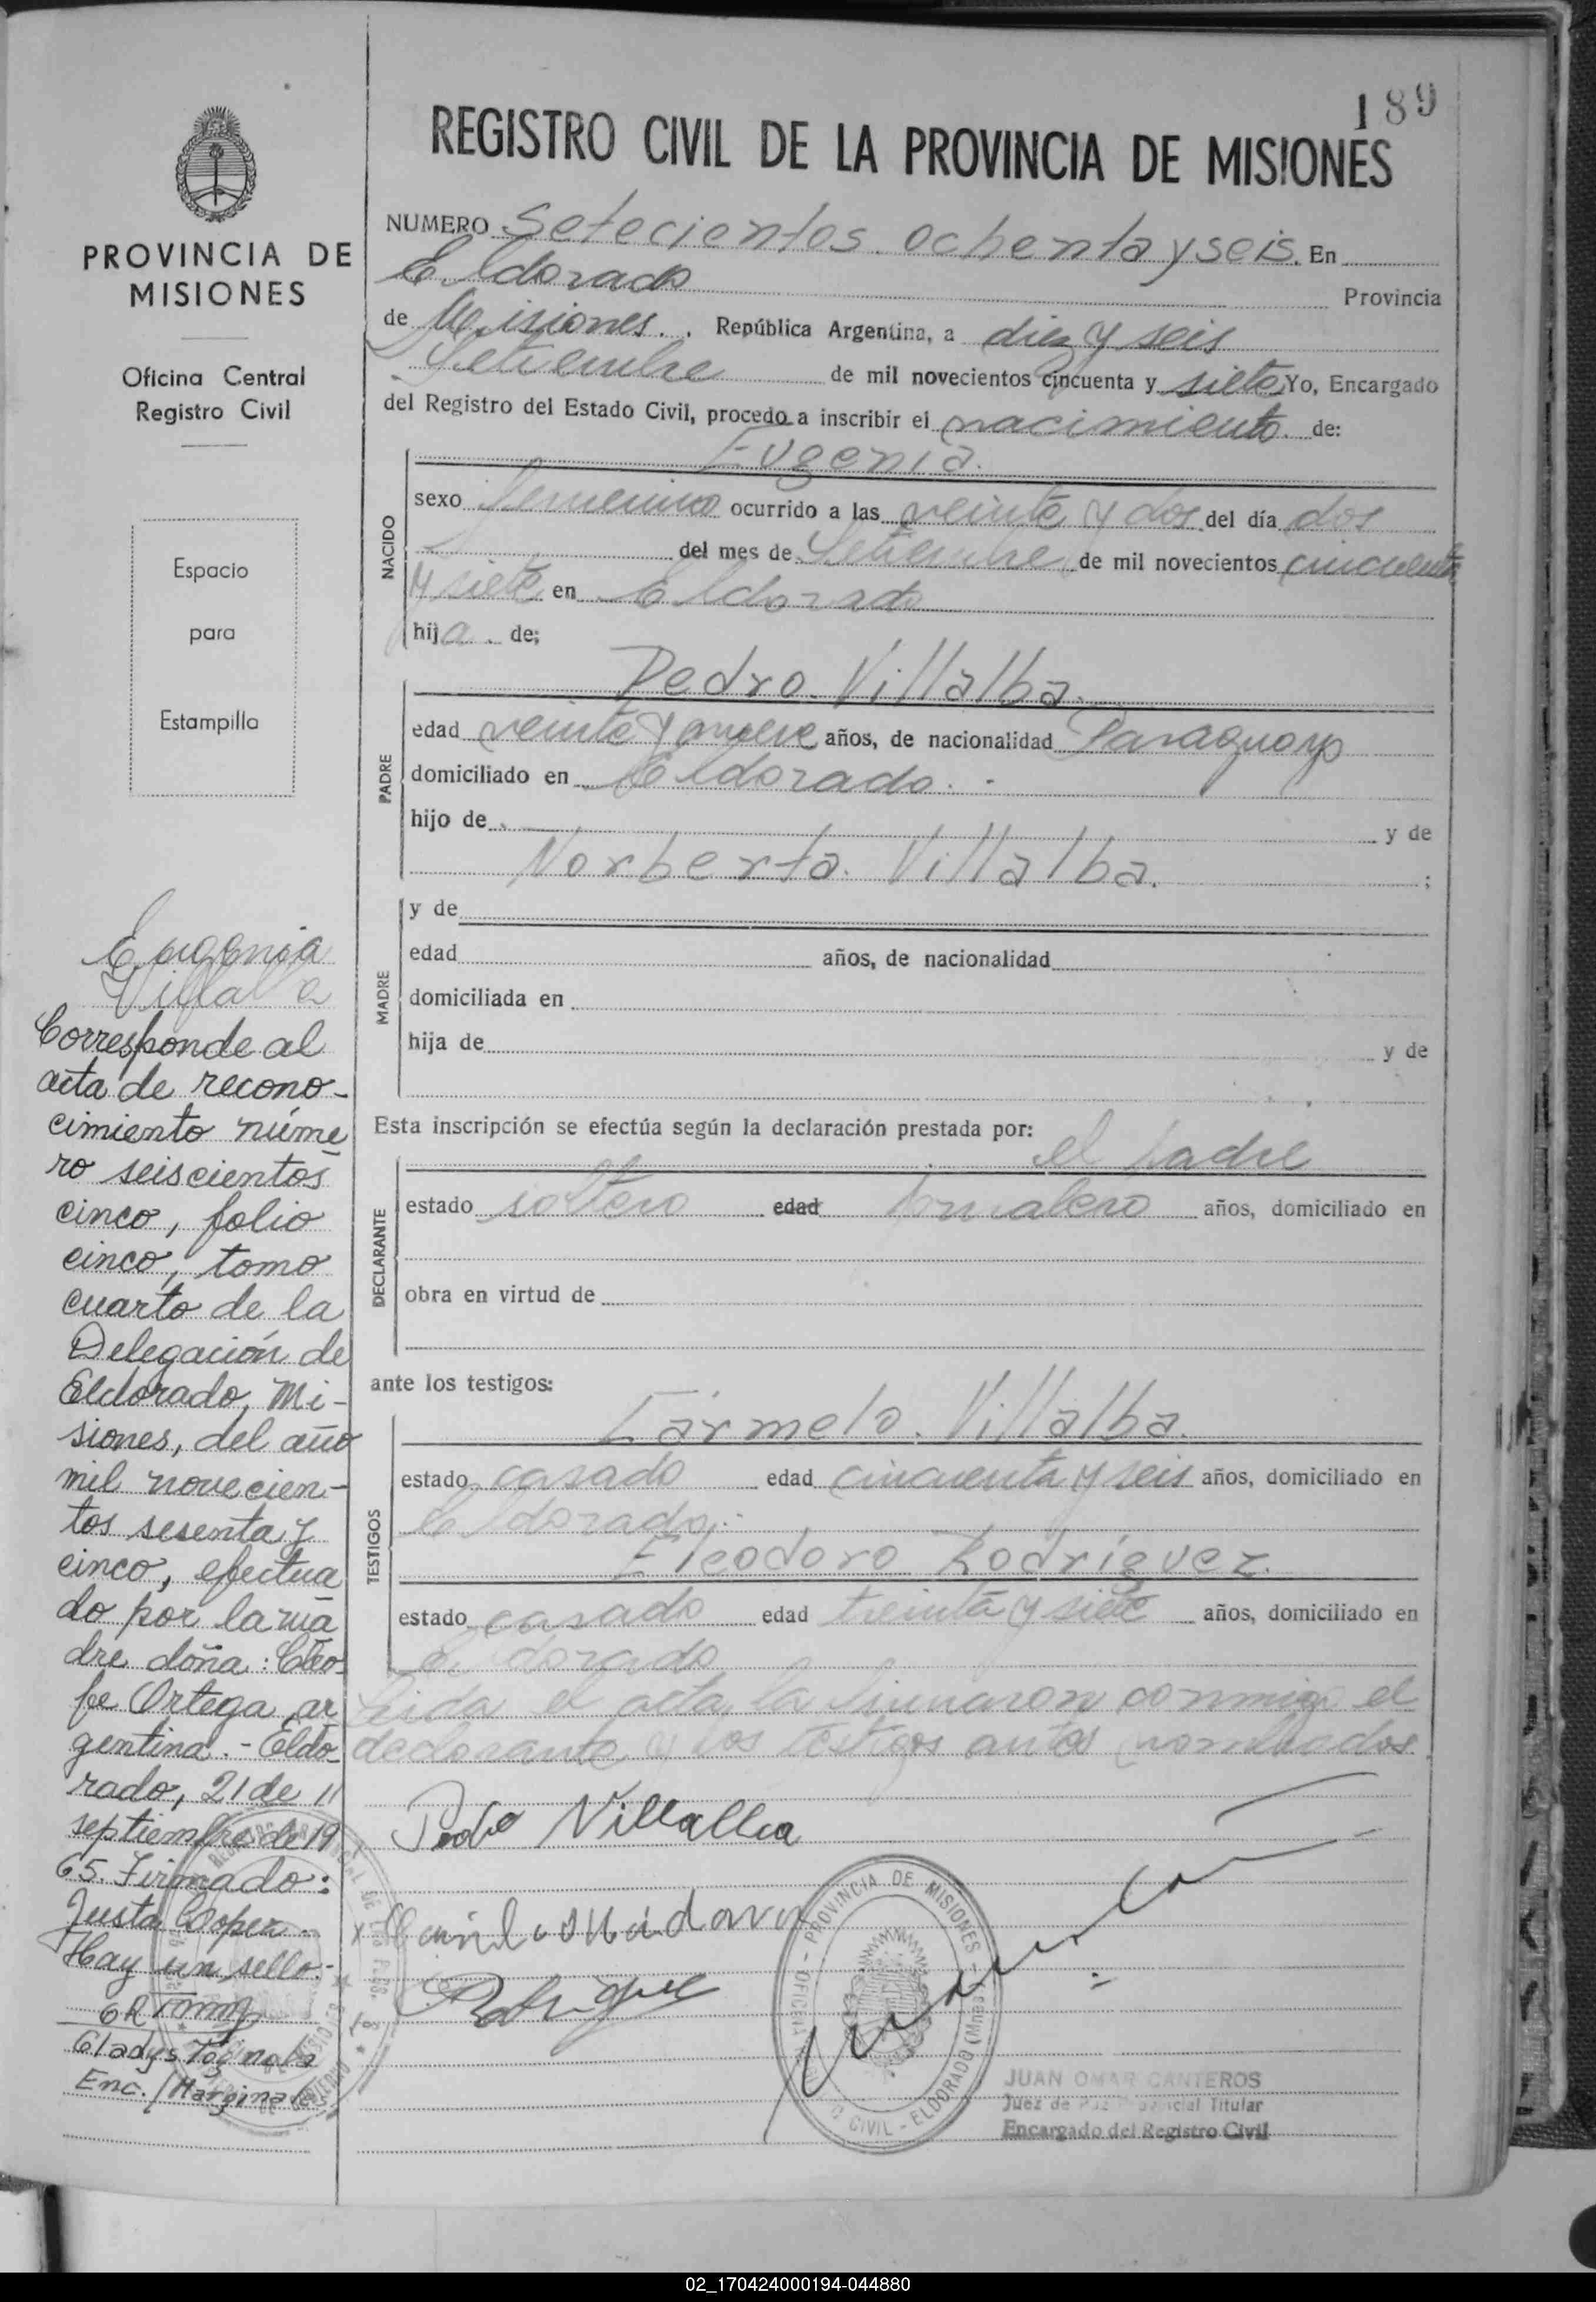 189
REGISTRO CIVIL DE LA PROVINCIA DE MISIONES
PROVINCIA DE
MISIONES
Oficina Central
Registro Civil
Espacio
para
Estampilla
NUMERO Setecientos ochenta y seis. En
Eldorado Provincia
de Misiones. República Argentina, a diez y seis
Setiembre de mil novecientos cincuenta y siete Yo, Encargado
del Registro del Estado Civil, procedo a inscribir el nacimiento de:
Eugenia.
NACIDO
sexo femenino ocurrido a las veinte y dos del día dos
del mes de Setiembre de mil novecientos cincuenta
y siete en Eldorado
hija de;
Pedro Villalba.
PADRE
edad veinte y nueve años, de nacionalidad Paraguayo
domiciliado en Eldorado.
hijo de y de
Norberta Villalba. ;
MADRE
y de
edad años, de nacionalidad
domiciliada en
hija de y de
Esta inscripción se efectúa según la declaración prestada por:
el padre
DECLARANTE
estado soltero edad jornalero años, domiciliado en
obra en virtud de
ante los testigos:
Carmelo Villalba.
TESTIGOS
estado casado edad cincuenta y seis años, domiciliado en
Eldorado.
Eleodoro Rodríguez.
estado casado edad treinta y siete años, domiciliado en
Eldorado
Leida el acta la firmaron conmigo el
declarante y los testigos antes nombrados.
Pedro Villalba
Rodriguez
PROVINCIA DE MISIONES - ELDORADO (Mnes.) - OFICINA REGISTRO CIVIL
JUAN OMAR CANTEROS
Juez de Paz Provincial Titular
Encargado del Registro Civil
Eugenia
Villalba
Corresponde al
acta de recono-
cimiento núme
ro seiscientos
cinco, folio
cinco, tomo
cuarto de la
Delegación de
Eldorado, Mi-
siones, del año
mil novecien-
tos sesenta y
cinco, efectua
do por la ma
dre doña: Cleo-
fe Ortega, ar
gentina. - Eldo-
rado, 21 de
septiembre de 19
65. Firmado:
Justa Lopez.
Hay un sello.-
Gladys Tognola
Enc. / Marginales
02_170424000194-044880